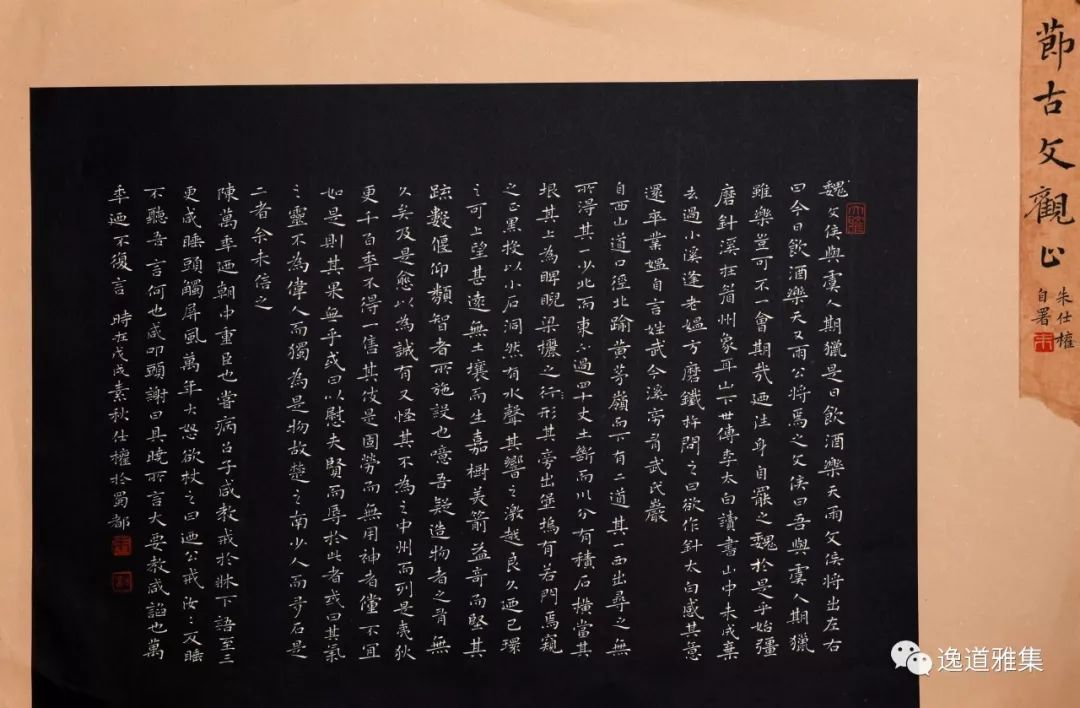 節古文觀止
朱仕權
自署
魏文侯與虞人期獵是日飲酒樂天雨文侯將出左右
曰今日飲酒樂天又雨公將焉之文侯曰吾與虞人期獵
雖樂豈可不一會期哉迺往身自罷之魏於是乎始彊
磨針溪在眉州象耳山下世傳李太白讀書山中未成棄
去過小溪逢老媼方磨鐵杵問之曰欲作針太白感其意
還卒業媼自言姓武今溪旁有武氏巖
自西山道口徑北踰黃茅嶺而下有二道其一西出尋之無
所得其一少北而東不過四十丈土斷而川分有積石橫當其
垠其上為睥睨梁欐之行形其旁出堡塢有若門焉窺
之正黑投以小石洞然有水聲其響之激越良久迺已環
之可上望甚遠無土壤而生嘉樹美箭益奇而堅其
疏數偃仰類智者所施設也噫吾疑造物者之有無
久矣及是愈以為誠有又怪其不為之中州而列是夷狄
更千百年不得一售其伎是固勞而無用神者儻不宜
如是則其果無乎或曰以慰夫賢而辱於此者或曰其氣
之靈不為偉人而獨為是物故楚之南少人而多石是
二者余未信之
陳萬年迺朝中重臣也嘗病召子咸教戒於牀下語至三
更咸睡頭觸屏風萬年大怒欲杖之曰迺公戒汝汝反睡
不聽吾言何也咸叩頭謝曰具曉所言大要教咸諂也萬
年迺不復言 時在戊戌素秋仕權於蜀都
逸道雅集